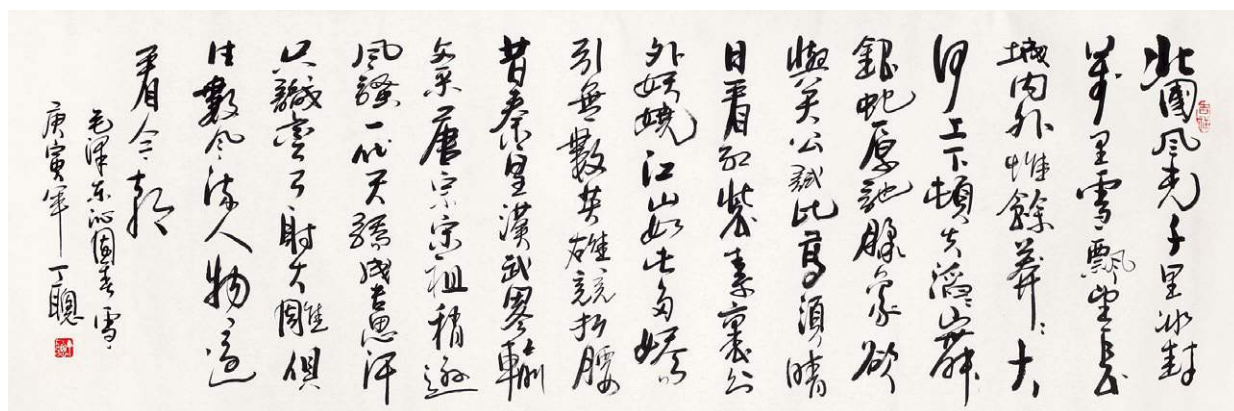 北國風光千里冰封
萬里雪飄望長
城内外惟餘莽〻大
河上下頓失滔〻山舞
銀蛇原馳臘象欲
與天公試比高須晴
日看紅裝素裹分
外妖嬈江山如此多嬌
引無數英雄競折腰
昔秦皇漢武略輸
文采唐宗宋祖稍遜
風騷一代天驕成吉思汗
只識彎弓射大雕俱
往數風流人物還
看今朝
毛澤東沁園春雪
庚寅年 丁聰